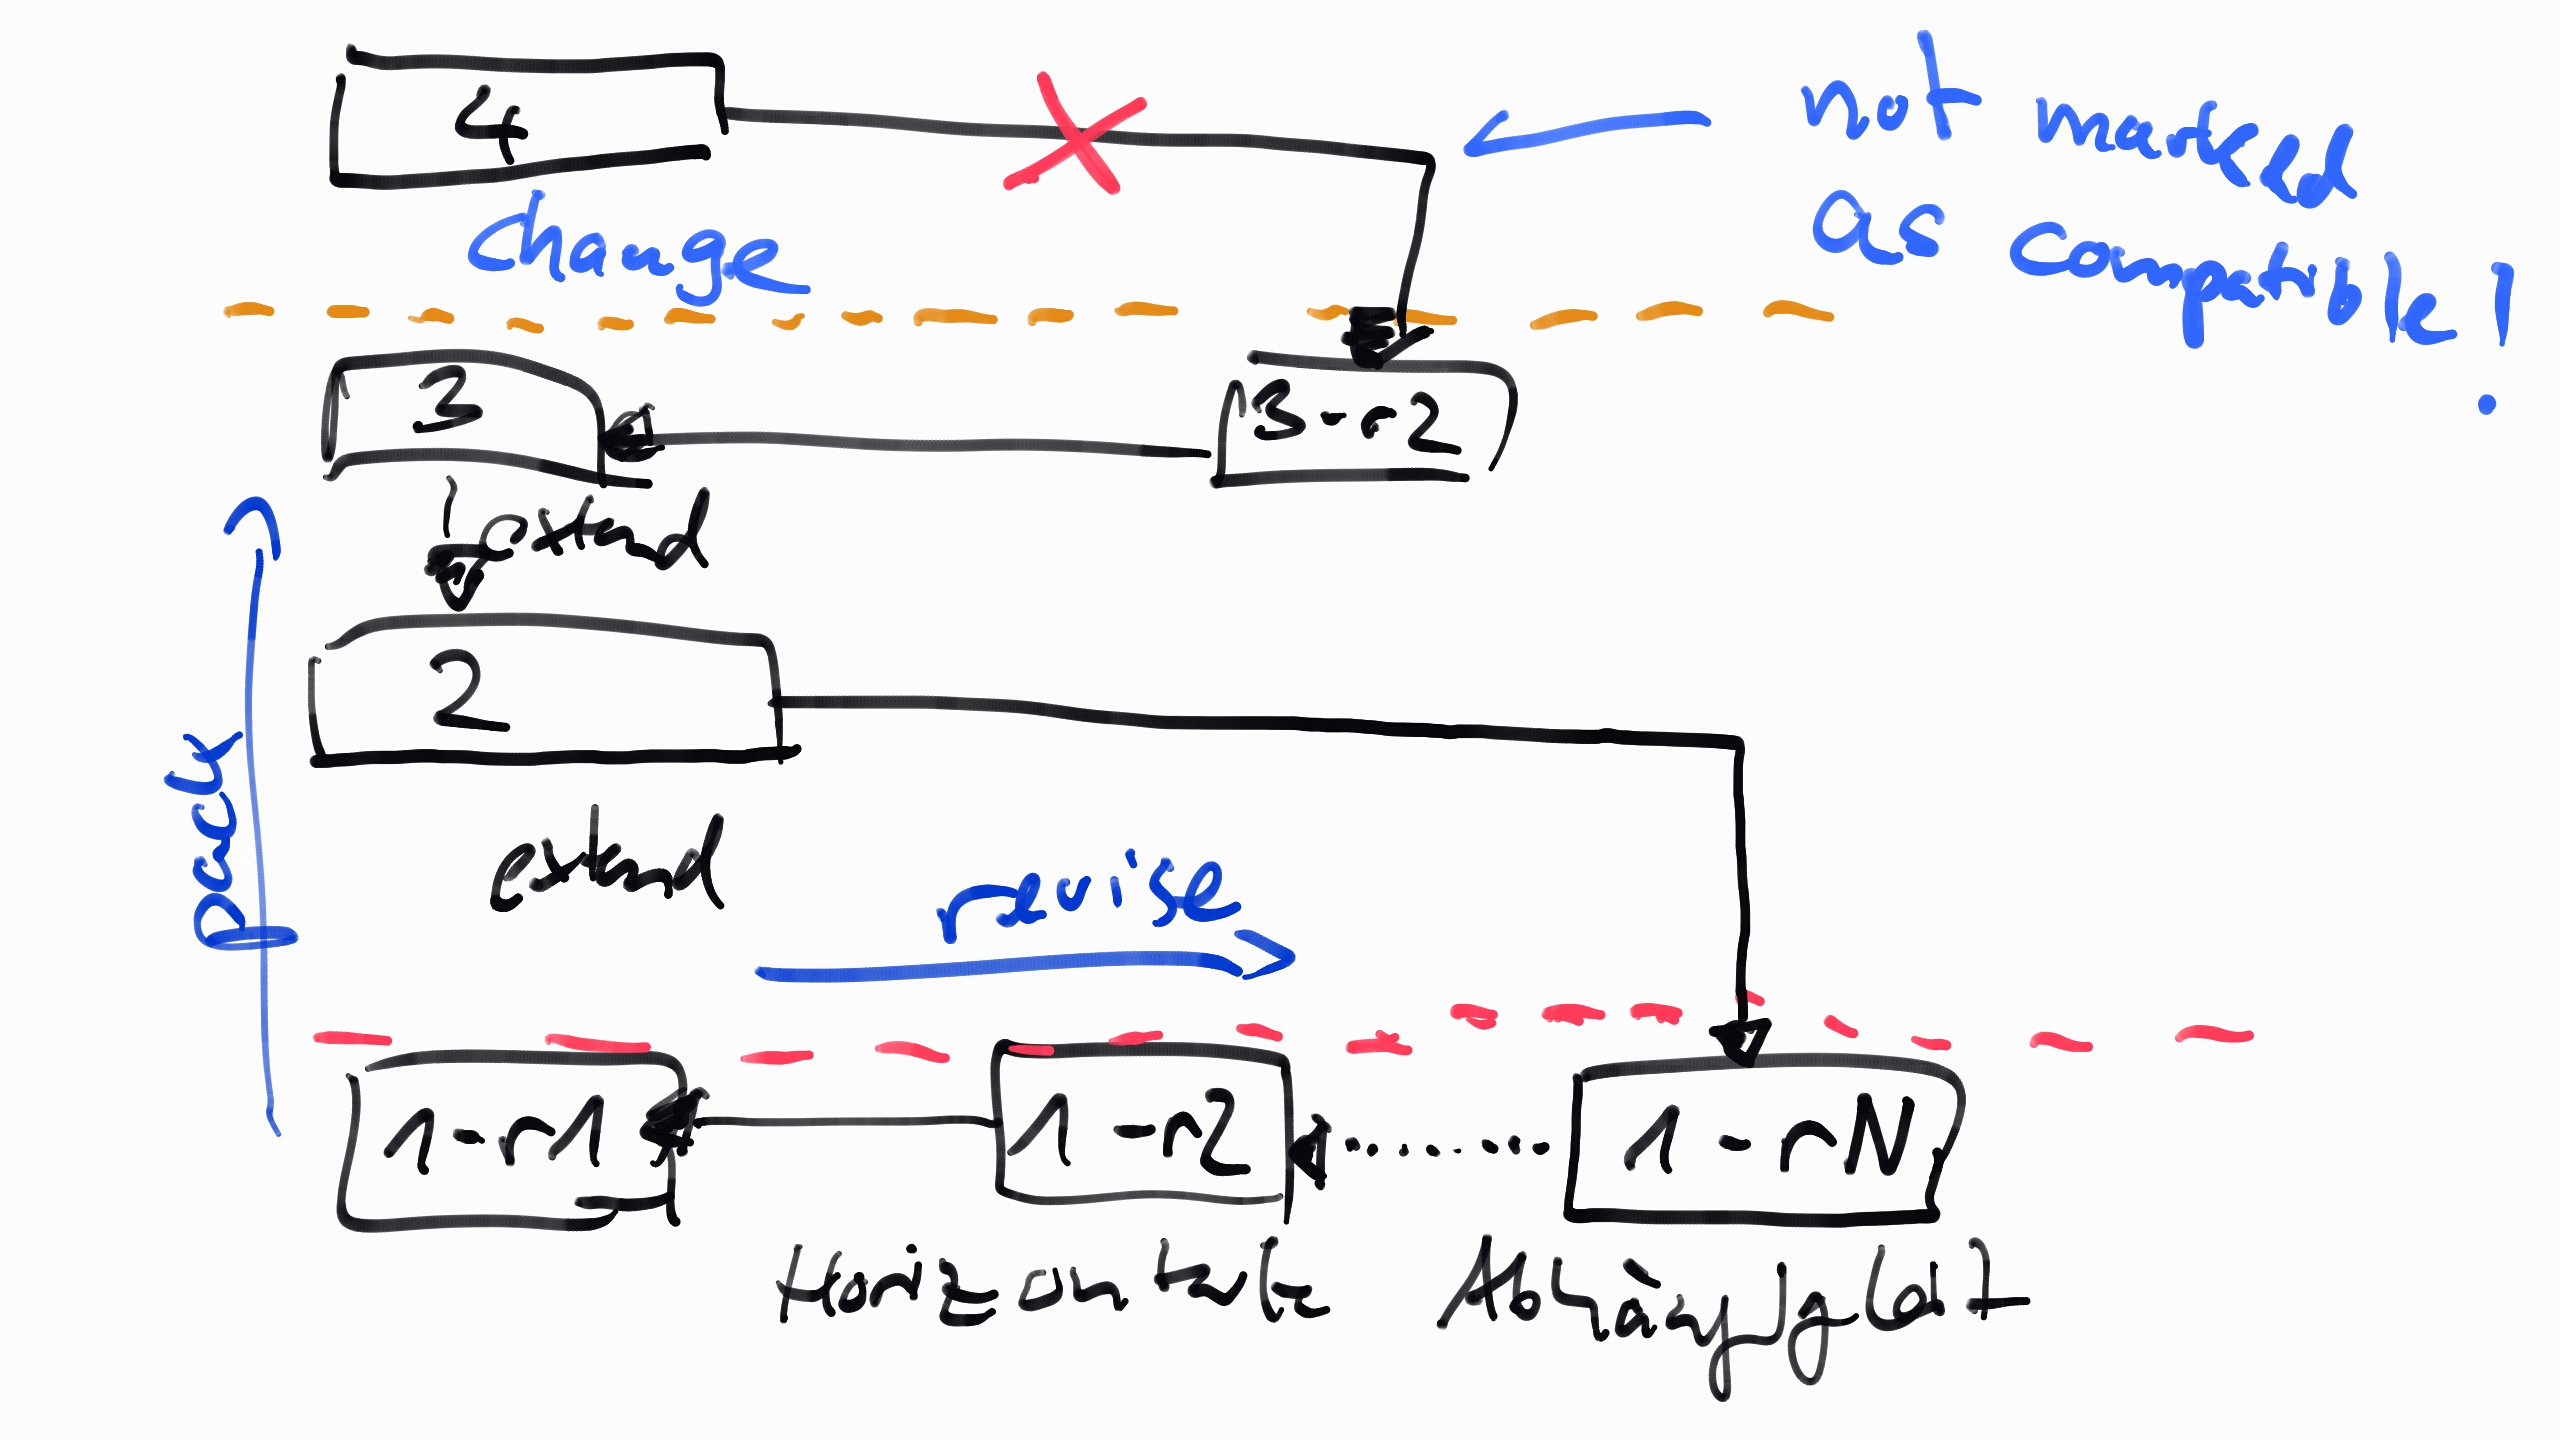 4
not marked
as compatible!
change
3
3-r2
extend
2
pack
extend
revise
1-r1
1-r2
1-rN
Horizontale Abhängigkeit